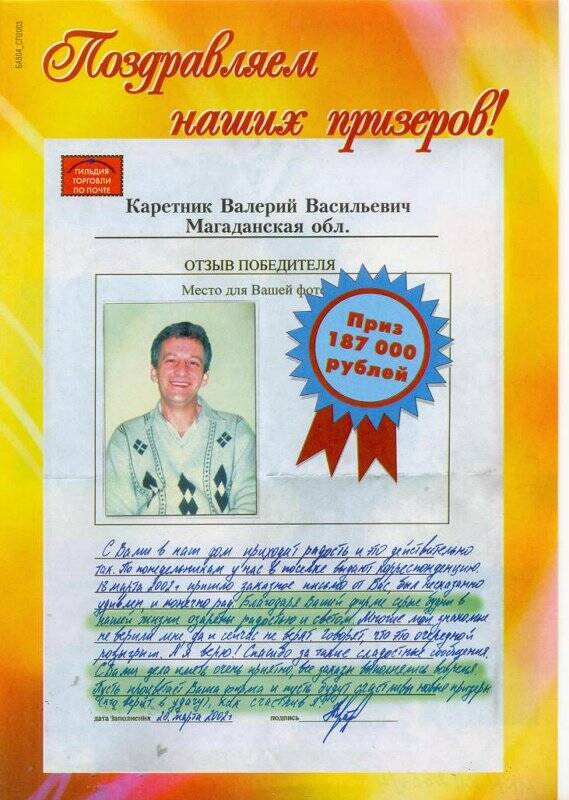 БА504_СП2003
Поздравляем
наших призеров!
ГИЛЬДИЯ
ТОРГОВЛИ
ПО ПОЧТЕ
Каретник Валерий Васильевич
Магаданская обл.
ОТЗЫВ ПОБЕДИТЕЛЯ
Место для Вашей фото
Приз
187 000
рублей
С Вами в наш дом приходит радость и это действительно
так. По понедельникам у нас в поселке выдают корреспонденцию.
18 марта 2002г пришло заказное письмо от Вас, был несказанно
удивлен и конечно рад. Благодаря Вашей фирме серые будни в
нашей жизни озарены радостью и светом. Многие мои знакомые
не верили мне да и сейчас не верят говорят, что это очередной
розыгрыш. А я верю! Спасибо за такие сладостные сообщения.
С Вами дела иметь очень приятно, все заказы выполнялись вовремя.
Пусть процветает Ваша фирма и пусть будут счастливы новые призеры
(кто верит в удачу), как счастлив я!
дата заполнения 20 марта 2002г подпись